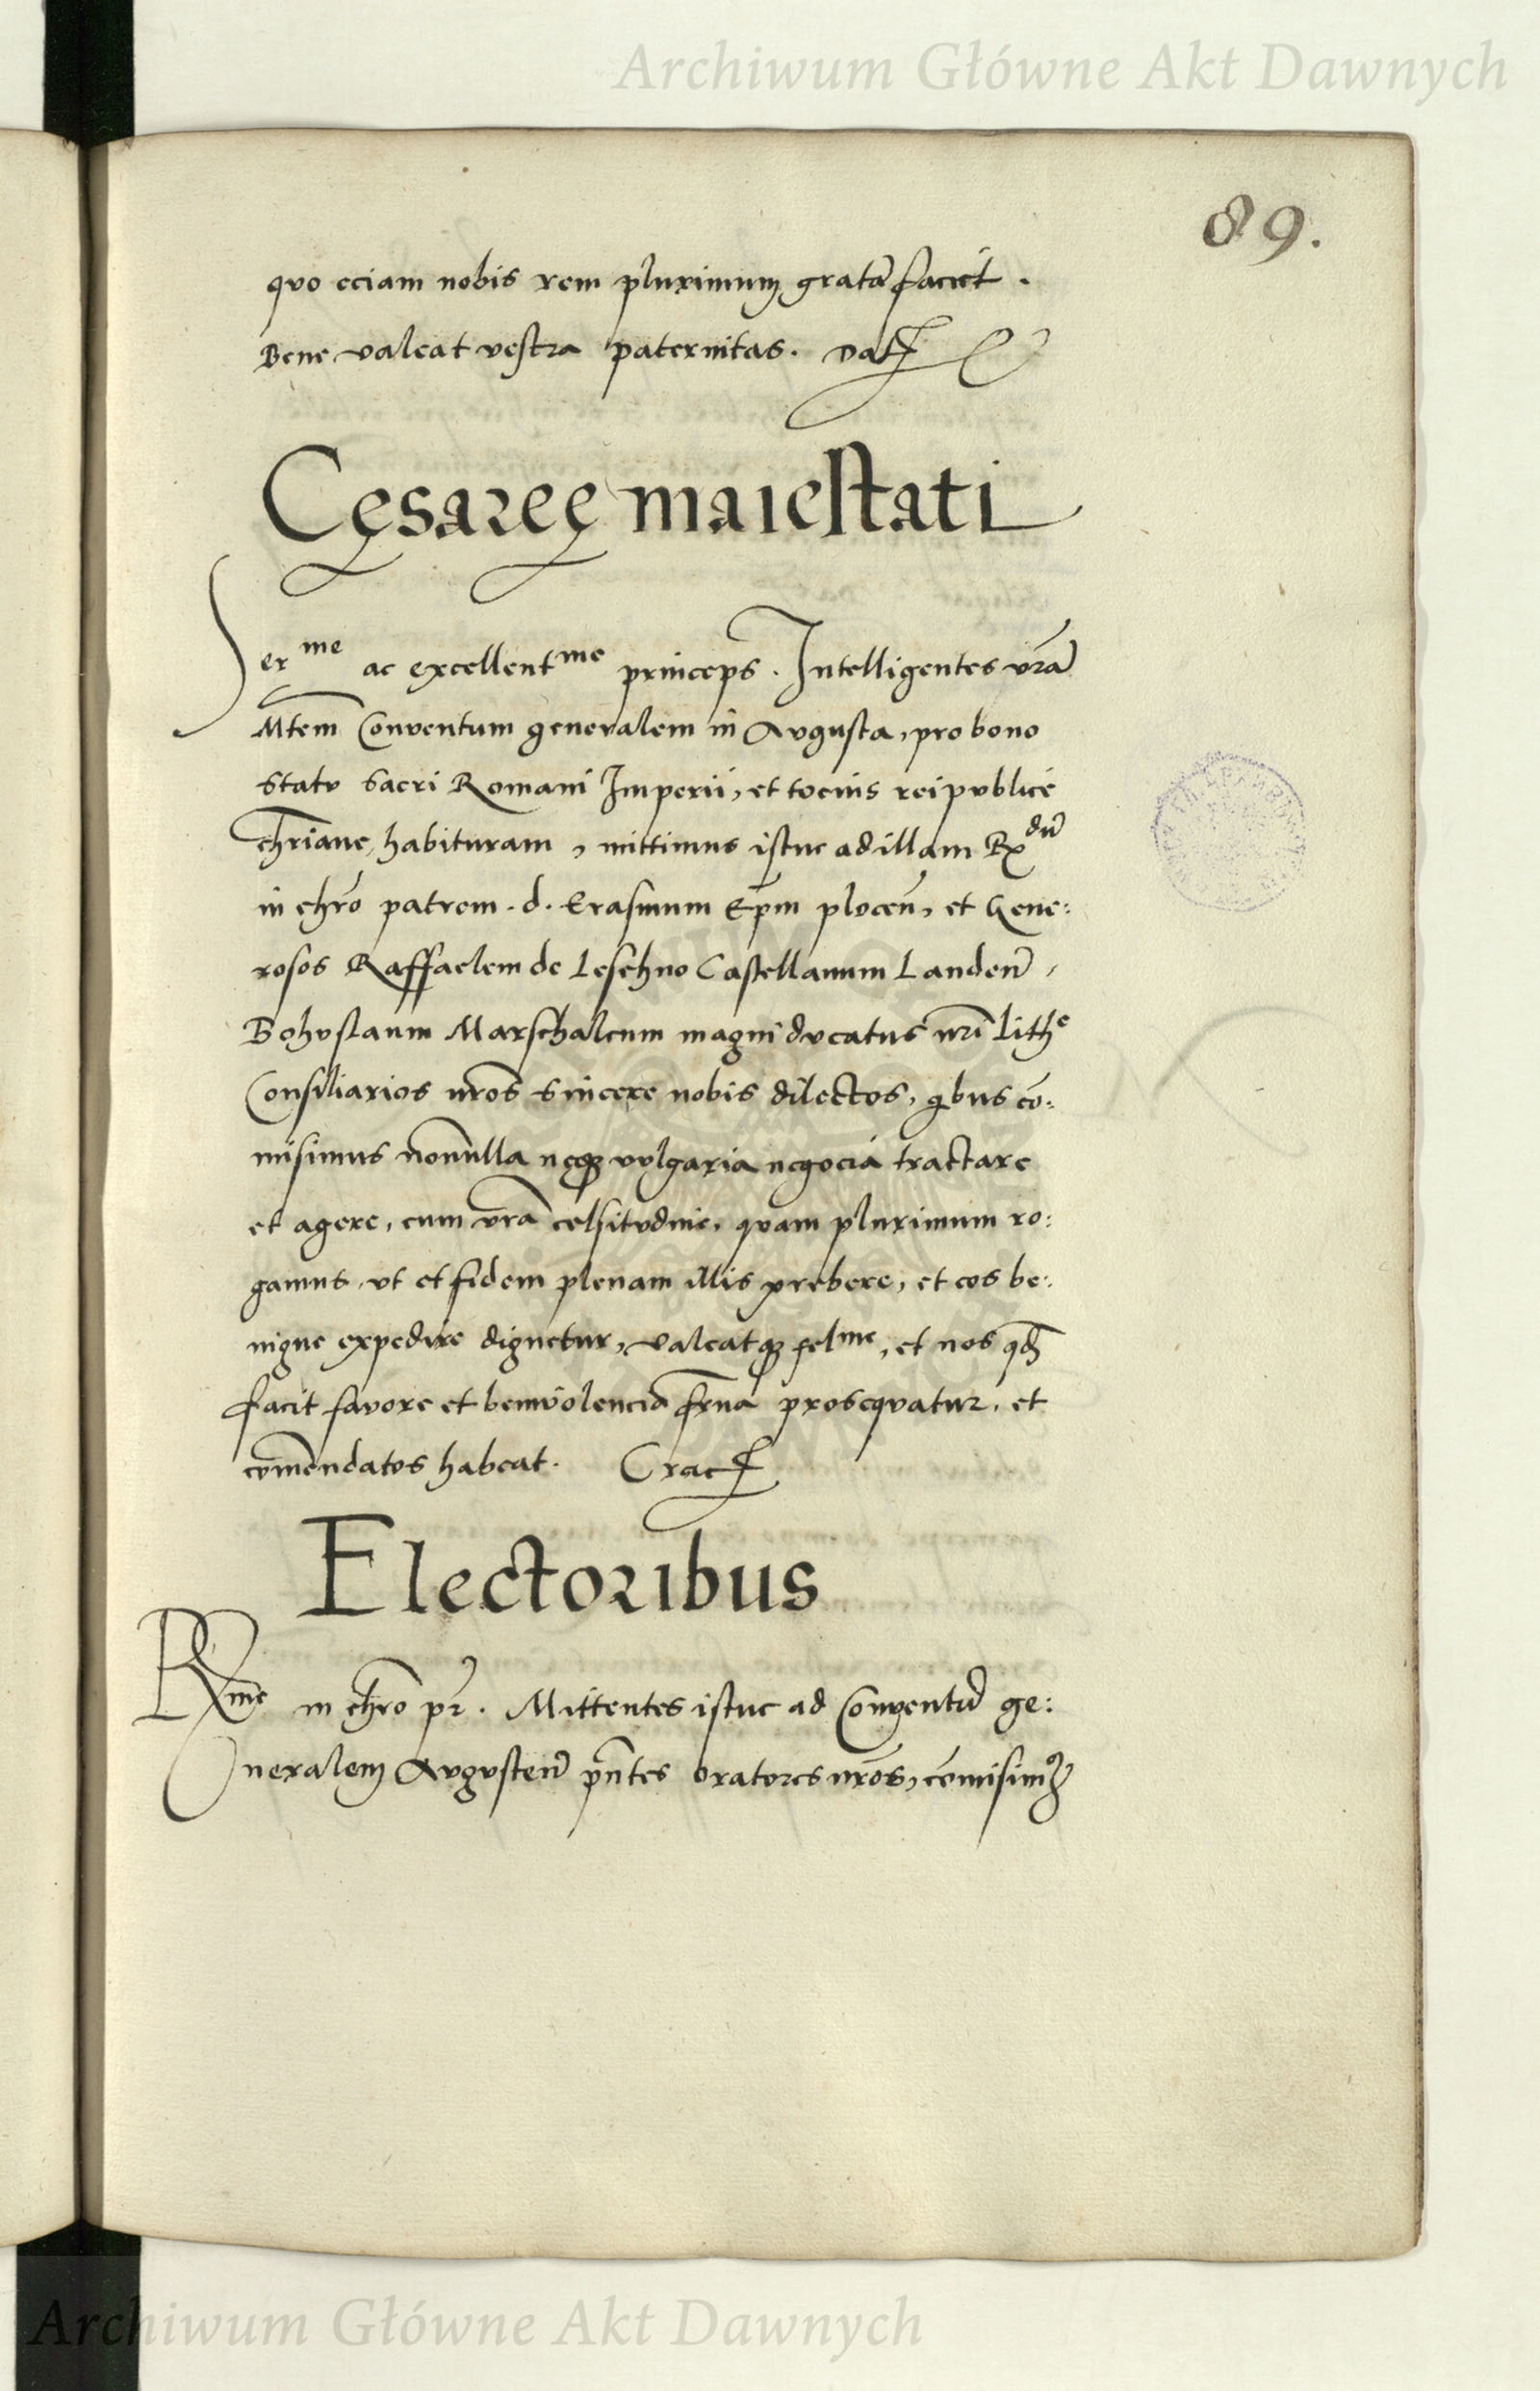 Archiwum Główne Akt Dawnych
89.
quo eciam nobis rem plurimum gratā faciet.
Bene valeat vestra paternitas. Dat
Cęsareę maiestati
Serme ac excellentme princeps. Intelligentes vrām
Mtem Conventum generalem in Avgusta, pro bono
statv sacri Romani Imperii, et tocius reipvblice
chriane habituram, mittimus istuc ad illam Rdū
in chrō patrem. d. Erasmum Epm plocen̄, et Gene:
rosos Raffaelem de Leschno Castellanum Landen̄,
Bohvslaum Marschalcum magni dvcatus nrī lithe
Consiliarios nrōs sincere nobis dilectos, qbus cō:
misimus nonnulla neqȝ vvlgaria negocia tractare
et agere, cum vrā celsitvdine, quam plurimum ro:
gamus, vt et fidem plenam illis prebere, et eos be:
nigne expedire dignetur, valeatqȝ felme, et nos qd
facit favore et benivolencia frna proseqvatur, et
comēndatos habeat. Crac
Electoribus
Rme in chrō pr. Mittentes istuc ad Conventū ge:
neralem Avgvsten̄ pn̄tes oratores nrōs, cōmisimꝰ
Archiwum Główne Akt Dawnych